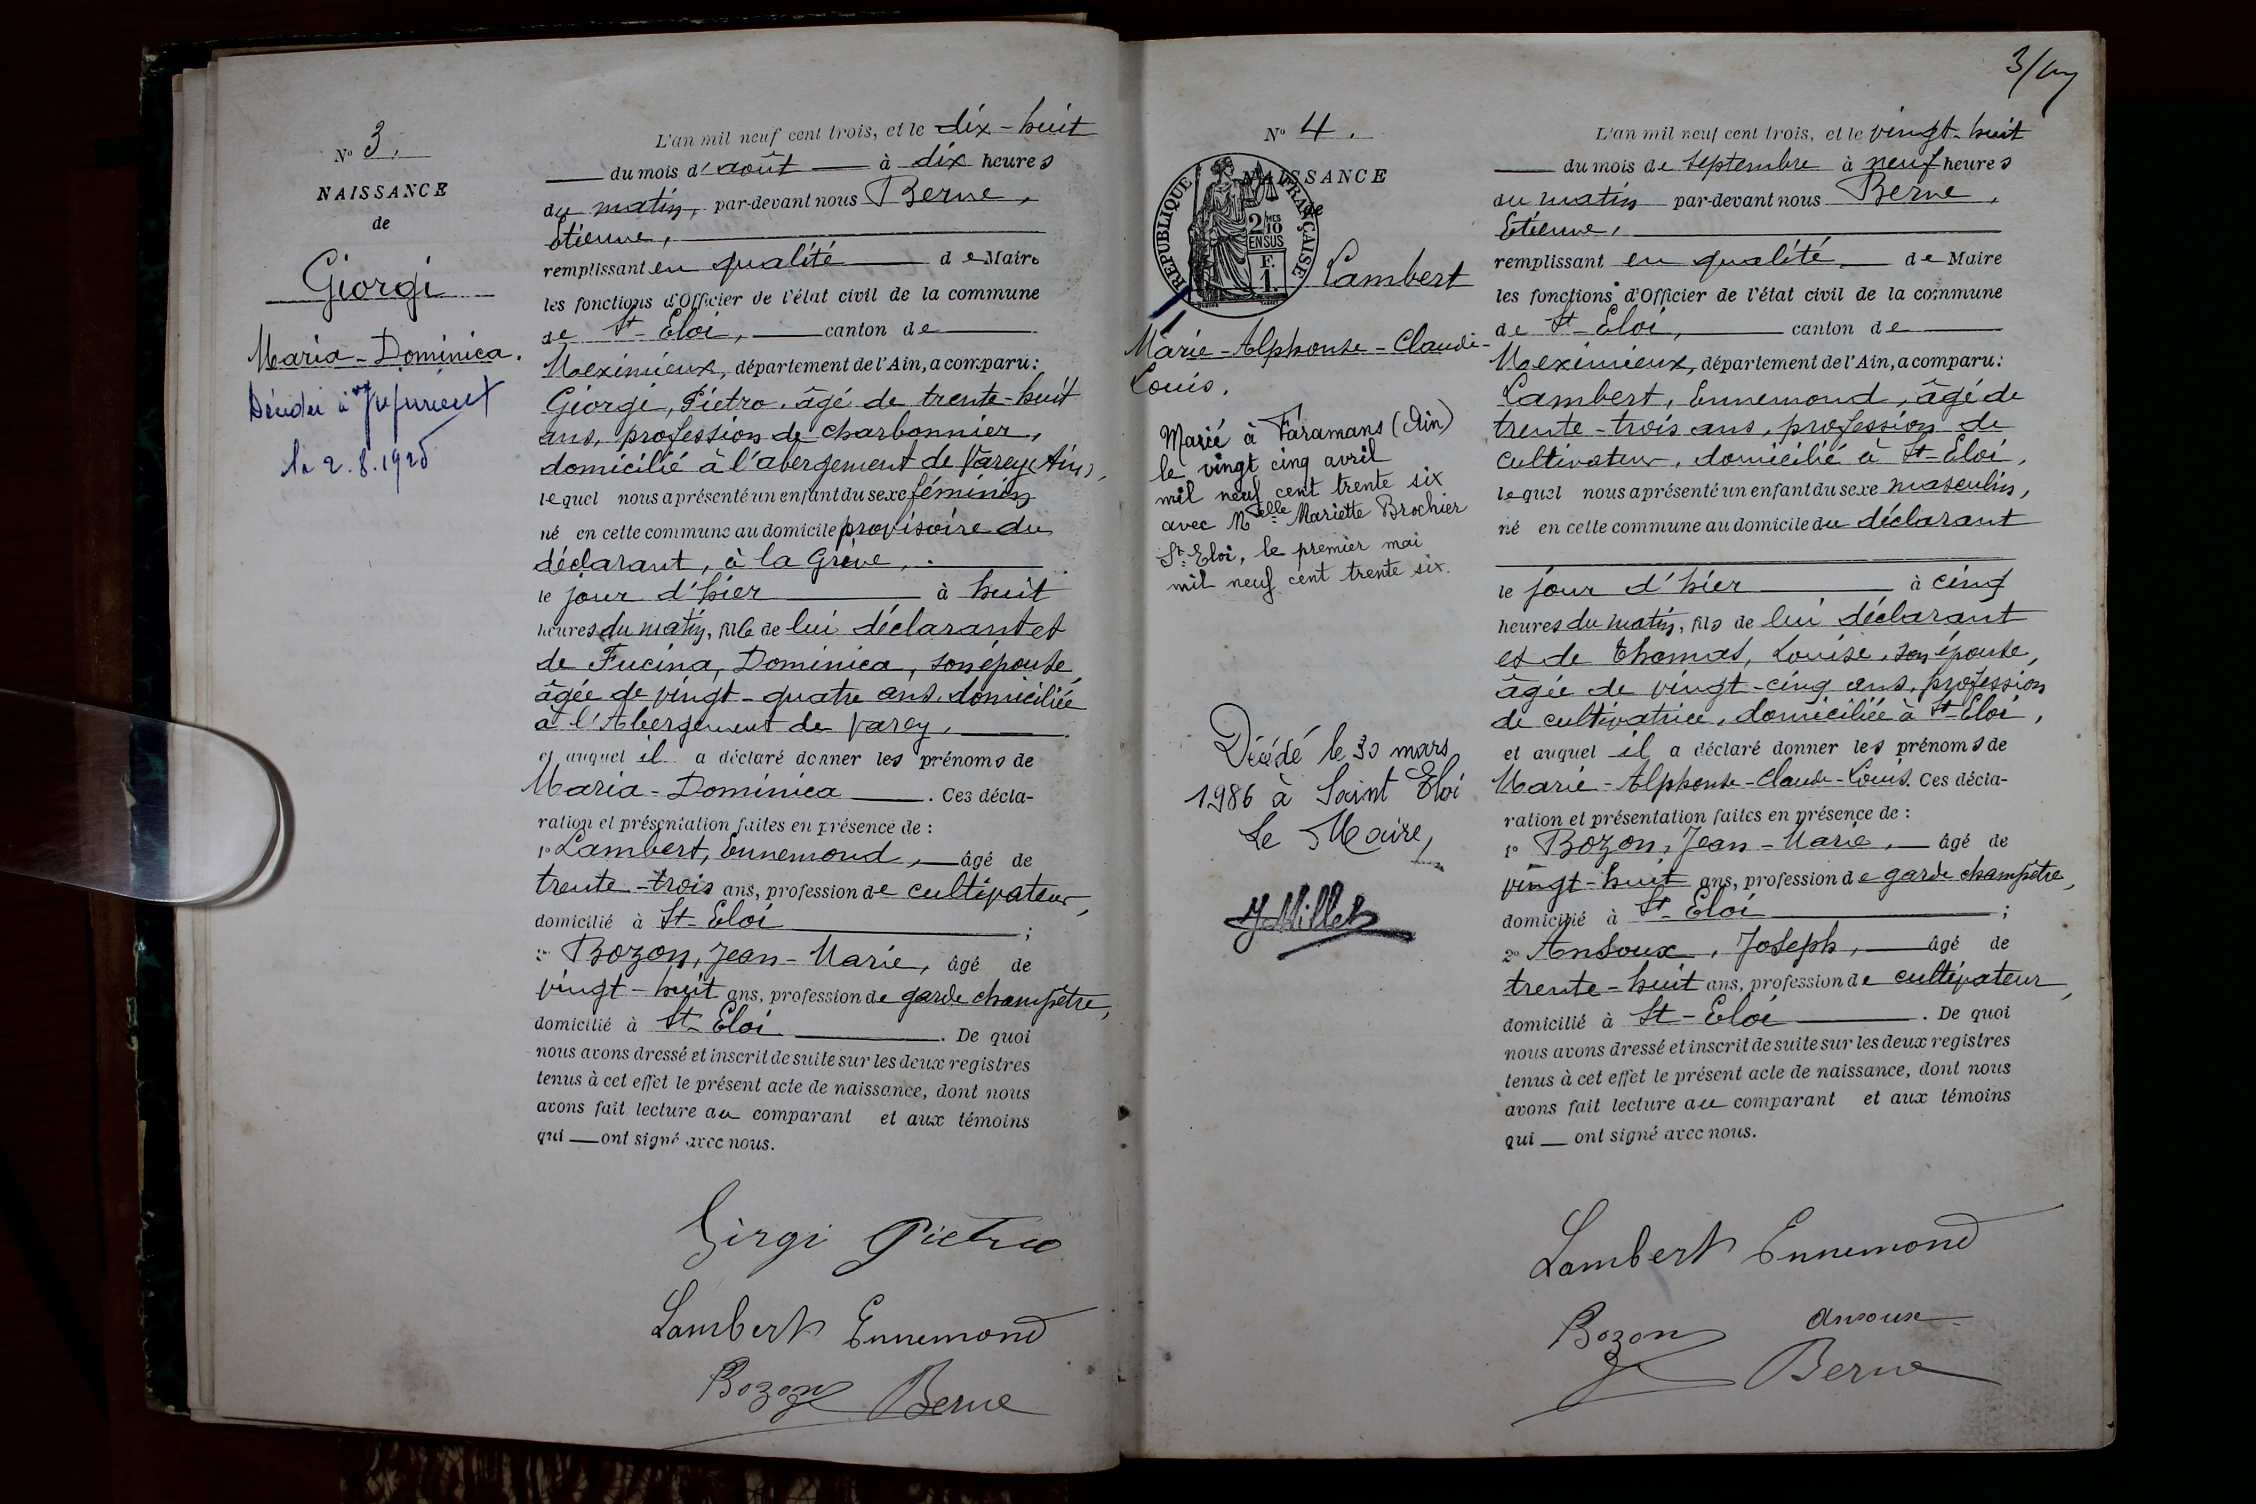 Nº 3.
NAISSANCE
de
Giorgi
Maria-Dominica.
à Jujurieux
le 2.8.192
L'an mil neuf cent trois, et le dix-huit
du mois d'août à dix heures
du matin, par-devant nous Berne,
Etienne,
remplissant en qualité de Maire
les fonctions d'Officier de l'état civil de la commune
de St-Eloi, canton de
Meximieux, département de l'Ain, a comparu:
Giorgi, Pietro, âgé de trente-huit
ans, profession de charbonnier,
domicilié à l'abergement de Varey (Ain),
lequel nous a présenté un enfant du sexe féminin
né en cette commune au domicile provisoire du
déclarant, à la Grève,
le jour d'hier à huit
heures du matin, fille de lui déclarant et
de Fucina, Dominica, son épouse,
âgée de vingt-quatre ans, domiciliée
à l'Abergement de Varey,
et auquel il a déclaré donner les prénoms de
Maria-Dominica. Ces décla-
ration et présentation faites en présence de :
1º Lambert, Ennemond, âgé de
trente-trois ans, profession de cultivateur,
domicilié à St-Eloi ;
2º Bozon, Jean-Marie, âgé de
vingt-huit ans, profession de garde champêtre,
domicilié à St-Eloi. De quoi
nous avons dressé et inscrit de suite sur les deux registres
tenus à cet effet le présent acte de naissance, dont nous
avons fait lecture au comparant et aux témoins
qui ont signé avec nous.
Girgi Pietro
Lambert Ennemond
Bozon Berne
Nº 4.
NAISSANCE
de
RÉPUBLIQUE FRANÇAISE
2/10 MES
EN SUS
F.
1.
Lambert
Marie-Alphonse-Claude-
Louis.
Marié à Faramans (Ain)
le vingt cinq avril
mil neuf cent trente six
avec Melle Mariette Brochier
St Eloi, le premier mai
mil neuf cent trente six.
Décédé le 30 mars
1986 à Saint Eloi
Le Maire,
L'an mil neuf cent trois, et le vingt-huit
du mois de septembre à neuf heures
du matin par-devant nous Berne,
Etienne,
remplissant en qualité de Maire
les fonctions d'Officier de l'état civil de la commune
de St-Eloi, canton de
Meximieux, département de l'Ain, a comparu:
Lambert, Ennemond, âgé de
trente-trois ans, profession de
cultivateur, domicilié à St-Eloi,
lequel nous a présenté un enfant du sexe masculin,
né en cette commune au domicile du déclarant
le jour d'hier à cinq
heures du matin, fils de lui déclarant
et de Thomas, Louise, son épouse,
âgée de vingt-cinq ans, profession
de cultivatrice, domiciliée à St-Eloi,
et auquel il a déclaré donner les prénoms de
Marie-Alphonse-Claude-Louis. Ces décla-
ration et présentation faites en présence de :
1º Bozon, Jean-Marie, âgé de
vingt-huit ans, profession de garde champêtre,
domicilié à St-Eloi ;
2º Ansoux, Joseph, âgé de
trente-huit ans, profession de cultivateur,
domicilié à St-Eloi. De quoi
nous avons dressé et inscrit de suite sur les deux registres
tenus à cet effet le présent acte de naissance, dont nous
avons fait lecture au comparant et aux témoins
qui ont signé avec nous.
Lambert Ennemond
Bozon Ansoux
Berne